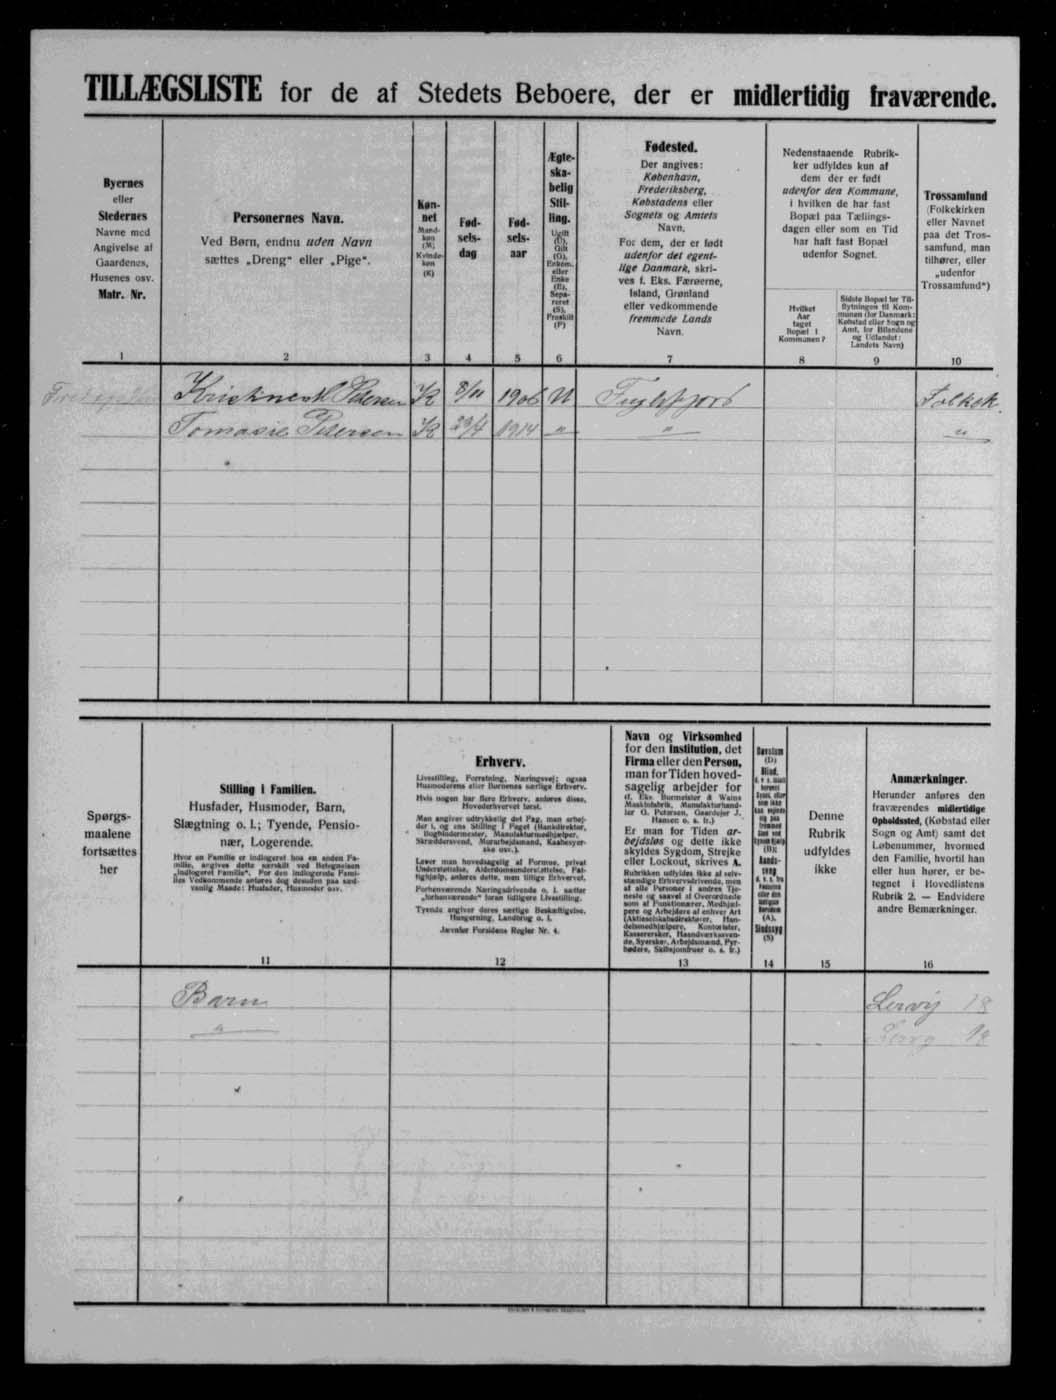 TILLÆGSLISTE for de af Stedets Beboere, der er midlertidig fraværende.
Byernes
eller
Stedernes
Navne med
Angivelse af
Gaardenes,
Husenes osv.
Matr. Nr.
1
Personernes Navn.
Ved Børn, endnu uden Navn
sættes „Dreng“ eller „Pige“.
2
Køn-
net
Mand-
køn
(M)
Kvinde-
køn
(K)
3
Fød-
sels-
dag
4
Fød-
sels-
aar
5
Ægte-
ska-
belig
Stil-
ling.
Ugift
(U),
Gift
(G),
Enkem.
eller
Enke
(E),
Sepa-
reret
(S),
Fraskilt
(F)
6
Fødested.
Der angives:
København,
Frederiksberg,
Købstadens eller
Sognets og Amtets
Navn.
For dem, der er født
udenfor det egent-
lige Danmark, skri-
ves f. Eks. Færøerne,
Island, Grønland
eller vedkommende
fremmede Lands
Navn.
7
Nedenstaaende Rubrik-
ker udfyldes kun af
dem der er født
udenfor den Kommune,
i hvilken de har fast
Bopæl paa Tællings-
dagen eller som en Tid
har haft fast Bopæl
udenfor Sognet.
Hvilket
Aar
taget
Bopæl i
Kommunen?
8
Sidste Bopæl før Til-
flytningen til Kom-
munen (for Danmark:
Købstad eller Sogn og
Amt, for Bilandene
og Udlandet:
Landets Navn)
9
Trossamfund
(Folkekirken
eller Navnet
paa det Tros-
samfund, man
tilhører, eller
„udenfor
Trossamfund“)
10
Petersen K 8/11 1906 U Fuglefjord Folkek.
Tomasie Petersen K 29/4 1914 " " "
Spørgs-
maalene
fortsættes
her
Stilling i Familien.
Husfader, Husmoder, Barn,
Slægtning o. l.; Tyende, Pensio-
nær, Logerende.
Hvor en Familie er indlogeret hos en anden Fa-
milie, angives dette særskilt ved Betegnelsen
„indlogeret Familie“. For den indlogerede Fami-
lies Vedkommende anføres dog desuden paa sæd-
vanlig Maade: Husfader, Husmoder osv.
11
Erhverv.
Livesstilling, Forretning, Næringsvej; ogsaa
Husmoderens eller Børnenes særlige Erhverv.
Hvis nogen har flere Erhverv, anføres disse,
Hovederhvervet først.
Man angiver udtrykkelig det Fag, man arbej-
der i, og ens Stilling i Faget (Bankdirektør,
Bogbindermester, Manufakturmedhjælper,
Skræddersvend, Murarbejdsmand, Kaabesyer-
ske osv.).
Lever man hovedsagelig af Formue, privat
Understøttelse, Alderdomsunderstøttelse, Fat-
tighjælp, anføres dette, men tillige Erhvervet.
Forhenværende Næringsdrivende o. l. sætter
„forhenværende“ foran tidligere Livsstilling.
Tyende angiver deres særlige Beskæftigelse,
Husgerning, Landbrug o. l.
Jævnfør Forsidens Regler Nr. 4.
12
Navn og Virksomhed
for den Institution, det
Firma eller den Person,
man for Tiden hoved-
sagelig arbejder for
(f. Eks. Burmeister & Wains
Maskinfabrik, Manufakturhand-
ler G. Petersen, Gaardejer J.
Hansen o. s. fr.)
Er man for Tiden ar-
bejdsløs og dette ikke
skyldes Sygdom, Strejke
eller Lockout, skrives A.
Rubrikken udfyldes ikke af selv-
stændige Erhvervsdrivende, men
af alle Personer i andres Tje-
neste og saavel af Overordnede
som af Funktionærer, Medhjæl-
pere og Arbejdere af enhver Art
(Aktieselskabsdirektører, Han-
delsmedhjælpere, Kontorister,
Kasserersker, Haandværkssven-
de, Syersker, Arbejdsmænd, Fyr-
bødere, Skibsjomfruer o. s. fr.)
13
Døvstum
(D)
Blind,
(B);
Aands-
svag
(A),
Sindssyg
(S)
14
Denne
Rubrik
udfyldes
ikke
15
Anmærkninger.
Herunder anføres den
fraværendes midlertidige
Opholdssted, (Købstad eller
Sogn og Amt) samt det
Løbenummer, hvormed
den Familie, hvortil han
eller hun hører, er be-
tegnet i Hovedlistens
Rubrik 2. — Endvidere
andre Bemærkninger.
16
Barn Lervig 18
" 18